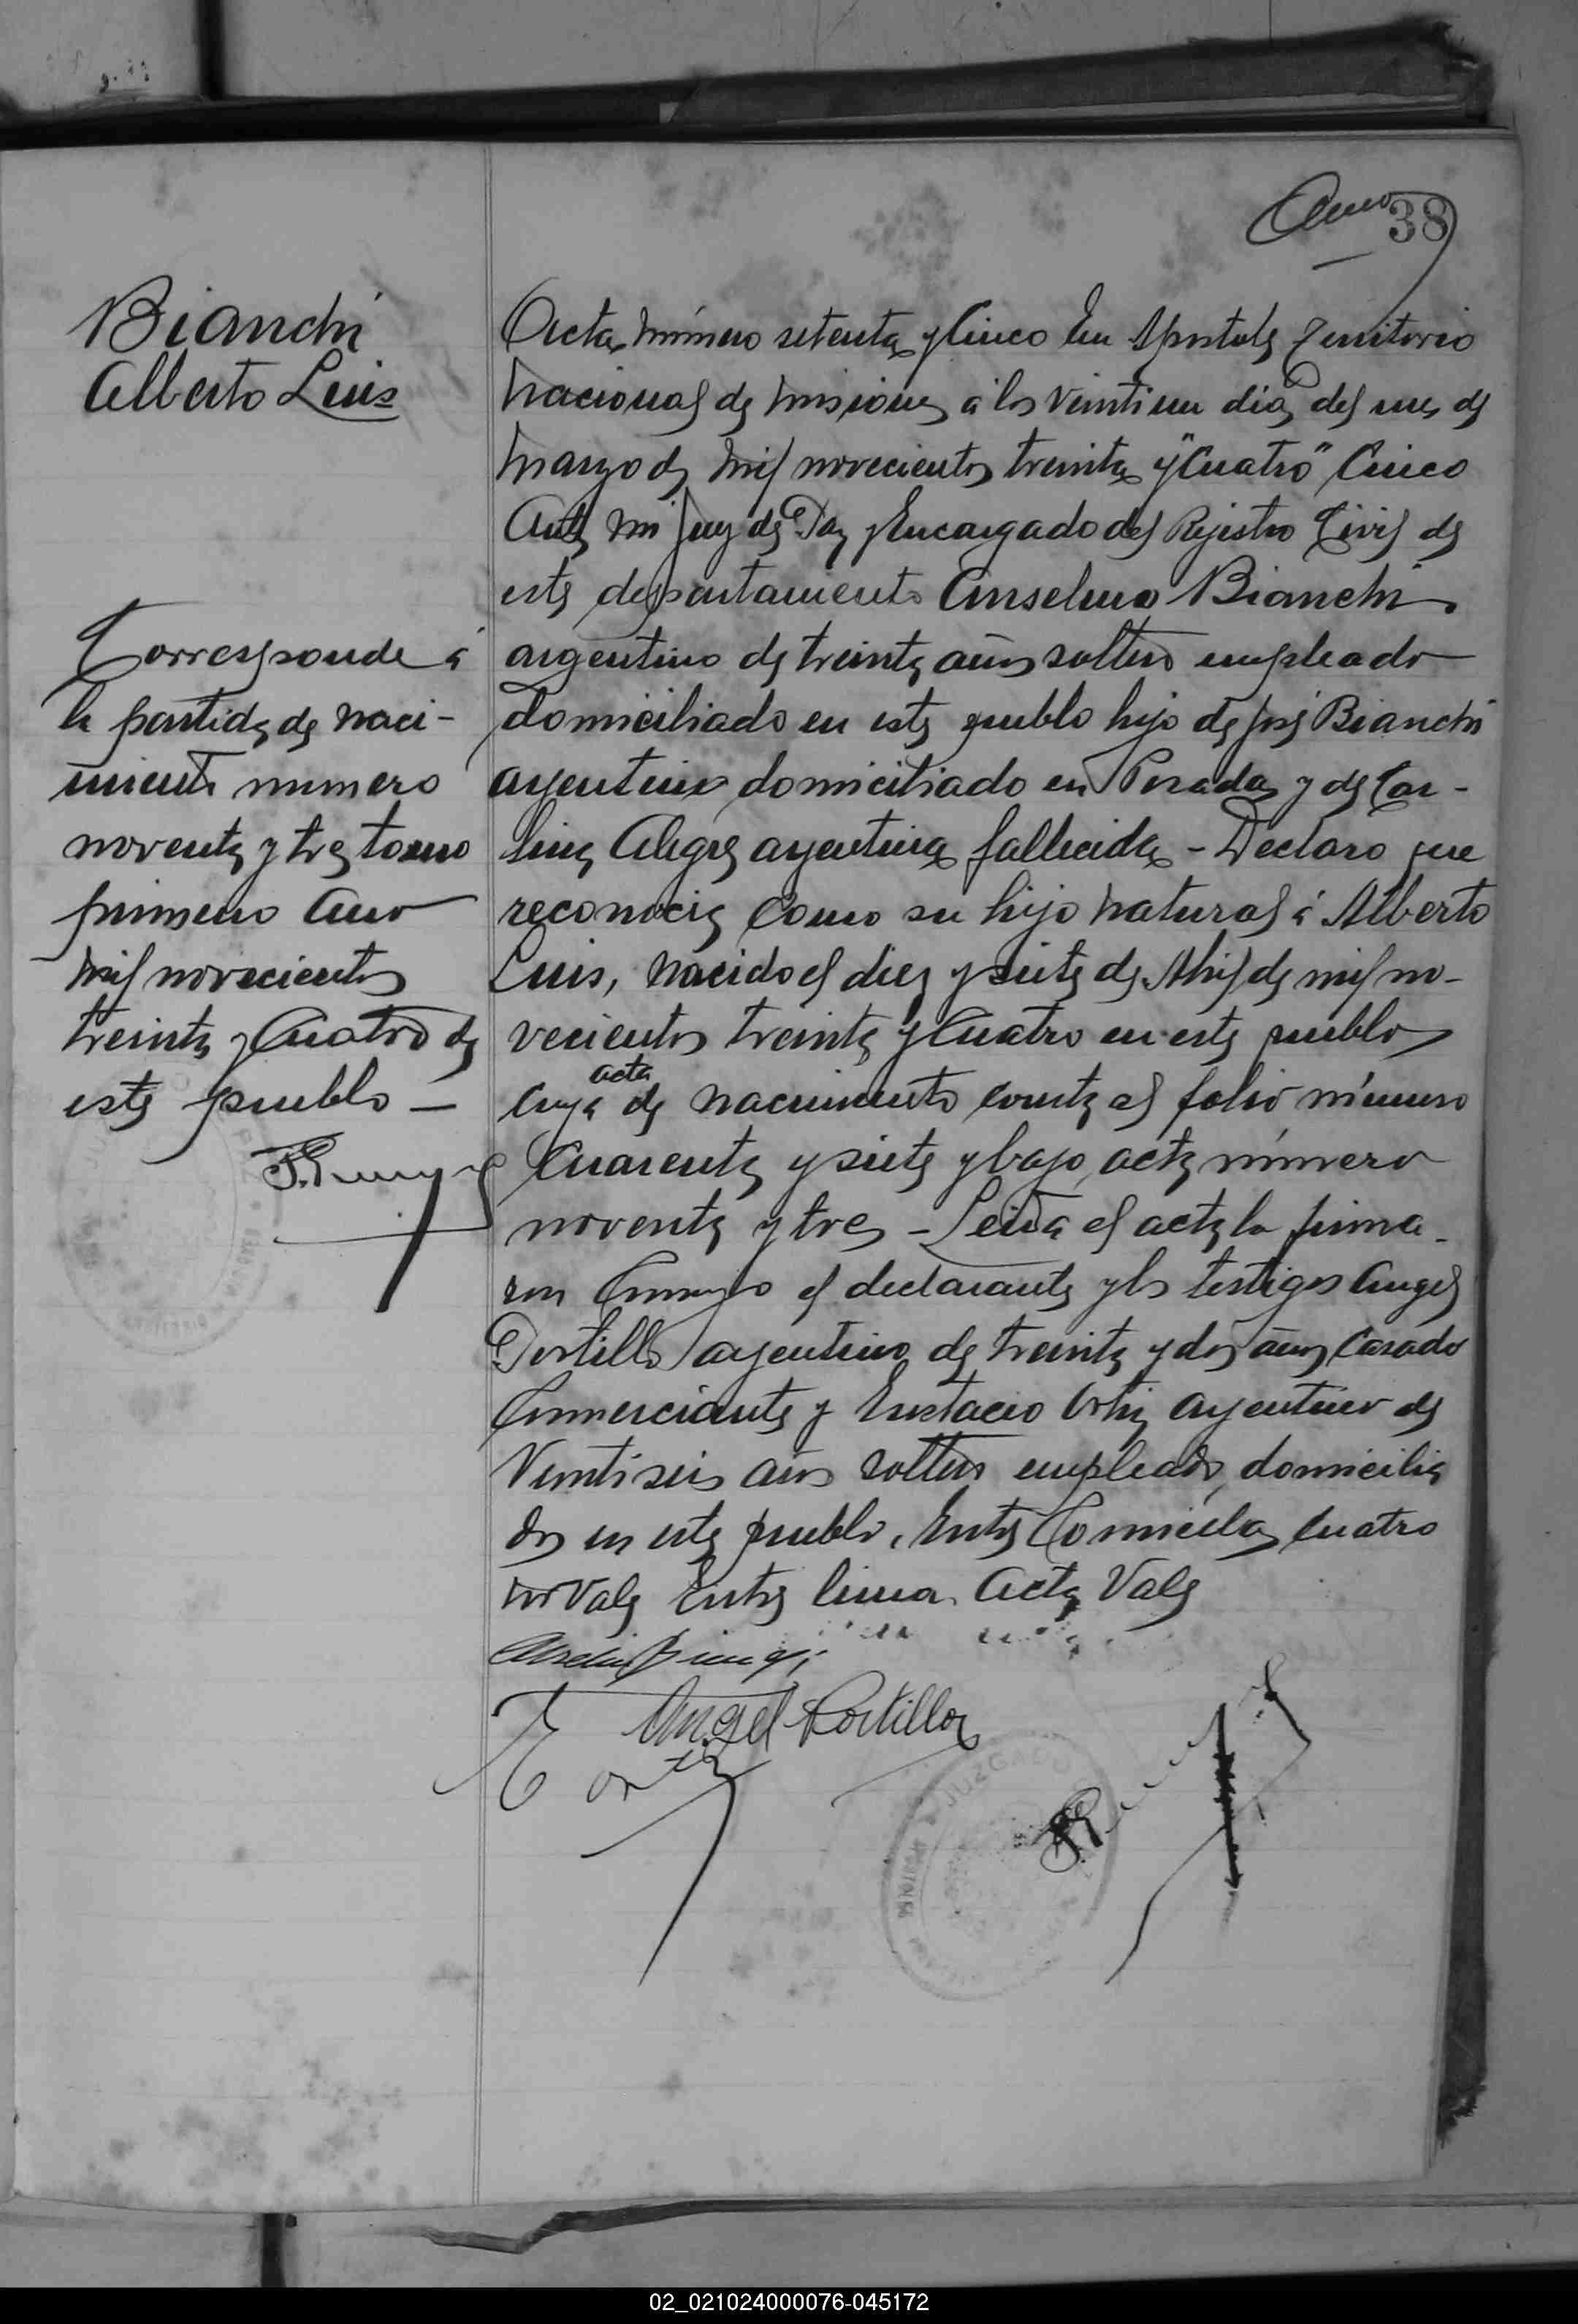 38
Bianchi
Alberto Luis
Corresponde á
la partida de naci-
miento numero
noventa y tres tomo
primero Año
mil novecientos
treinta y Cuatro de
este pueblo —
Acta número setenta y Cinco En Apostoles Territorio
Nacional de Misiones a los veintiun dias del mes de
Marzo de Mil novecientos treinta y "Cuatro" Cinco
Ante mi Juez de Paz y Encargado del Rejistro Civil de
este departamento Anselmo Bianchi
argentino de treinta años soltero empleado
domiciliado en este pueblo hijo de José Bianchi
argentino domiciliado en Posadas y de
Alegre argentina fallecida - Declaro que
reconocia como su hijo natural á Alberto
Luis, nacido el diez y siete de Abril de mil no-
vecientos treinta y Cuatro en este pueblo
Cuya acta de nacimiento consta al folio número
Cuarenta y siete y bajo acta número
noventa y tres - Leida el acta la firma-
ron Conmigo el declarante y los testigos Angel
Portillo argentino de treinta y dos años Casado
Comerciante y Eustacio Ortiz argentino de
Ventiseis años soltero empleado, domicilia
dos en este pueblo. Entre Comillas Cuatro
no Vale Entre linea. Acta Vale
Angel Portillo
E Ortiz
JUZGADO
02_021024000076-045172